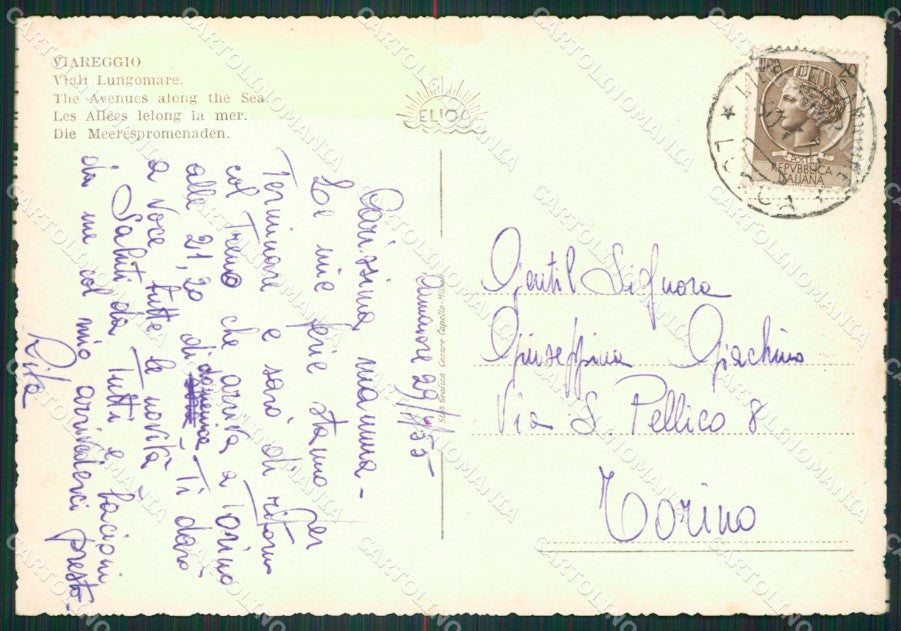 VIAREGGIO
Viali Lungomare.
The Avenues along the Sea
Les Allées lelong la mer.
Die Meerespromenaden.
ELIOA
29/9/55
Carissima mamma -
Le mie ferie stanno per
Terminare e sarò di ritorno
col Treno che arriva a Torino
alle 21,20 di domenica - Ti darò
a voce tutte le novità
Saluti da Tutti e bacioni
da me col mio arrivederci presto -
Rita
Gentil Signora
Giuseppina Giachino
Via S Pellico 8
Torino
REPVBBLICA
ITALIANA
POSTE
LUCCA
CARTOLINOMANIA